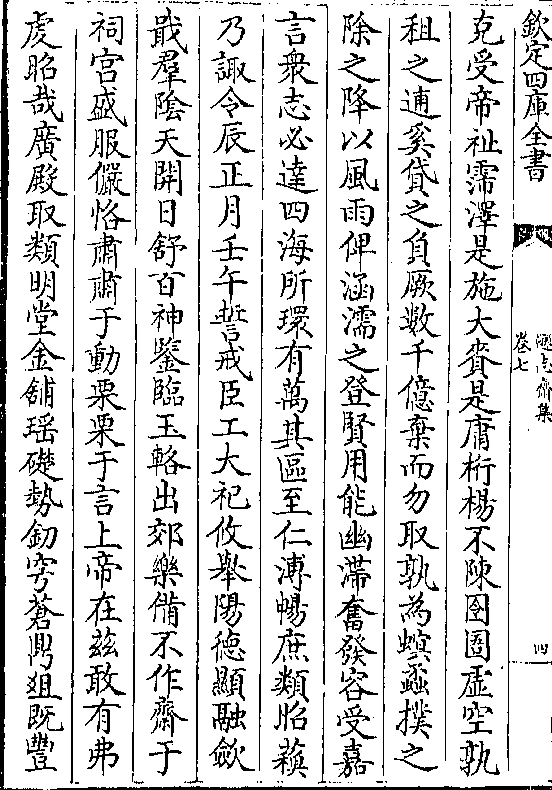 欽定四庫全書
遜志齋集
卷七
四
克受帝祉霈澤是施大賚是庸桁楊不陳囹圄虚空孰
租之逋奚貸之負厥数千億棄而勿取孰為螟蟊撲之
除之降以風雨俾涵濡之登賢用能幽滯奮發容受嘉
言衆志必達四海所環有萬其區至仁溥暢庶類昭蘇
乃諏令辰正月壬午誓戒臣工大祀攸舉陽德顯融歛
戢羣陰天開日舒百神鑒臨玉輅出郊樂備不作齋于
祠宫盛服儼恪肅肅于動栗栗于言上帝在兹敢有弗
虔昭哉廣殿取類明堂金舖瑶礎勢切穹蒼鼎俎既豐